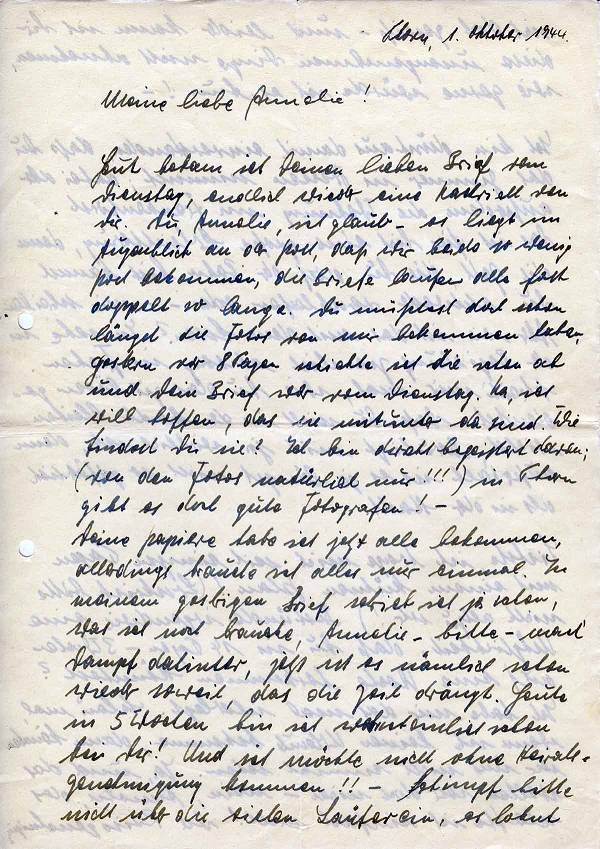 Thorn, 1. Oktober 1944.
Meine liebe Annelie!
Heut bekam ich Deinen lieben Brief vom
Dienstag, endlich wieder eine Nachricht von
Dir. Du, Annelie, ich glaub - es liegt im
Augenblick an der Post, daß wir beide so wenig
Post bekommen, die Briefe laufen alle fast
doppelt so lange. Du mußtest doch schon
längst die Fotos von mir bekommen haben,
gestern vor 8 Tagen schickte ich die schon ab
und Dein Brief war vom Dienstag. Na, ich
will hoffen, das sie mitunter da sind. Wie
findest Du sie? Ich bin direkt begeistert davon;
(von den Fotos natürlich nur!!!) in Thorn
gibt es doch gute Fotografen! -
Deine Papiere habe ich jetzt alle bekommen,
allerdings brauche ich alles nur einmal. In
meinem gestrigen Brief schrieb ich ja schon,
was ich noch brauche, Annelie - bitte - mach
Dampf dahinter, jetzt ist es nämlich schon
wieder soweit, das die Zeit drängt. Heute
in 5 Wochen bin ich wahrscheinlich schon
bei Dir! Und ich möchte nicht ohne Heirats-
genehmigung kommen!! - Schimpf bitte
nicht über die vielen Laufereien, es lohnt